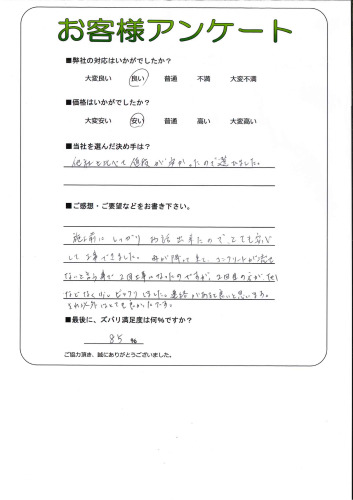 お客様アンケート
■弊社の対応はいかがでしたか?
大変良い 良い 普通 不満 大変不満
■価格はいかがでしたか?
大変安い 安い 普通 高い 大変高い
■当社を選んだ決め手は?
他社と比べて値段が安かったので選びました。
■ご感想・ご要望などをお書き下さい。
施工前にしっかりお話出来たので、とても安心
して工事できました。雨が降って来て、コンクリートが
ないと言う事で2回工事になったのですが、2回目の方が、
などなく少しビックリしました。連絡があると良いと思います。
それ以外はとても良かったです。
■最後に、ズバリ満足度は何%ですか?
85 %
ご協力頂き、誠にありがとうございました。